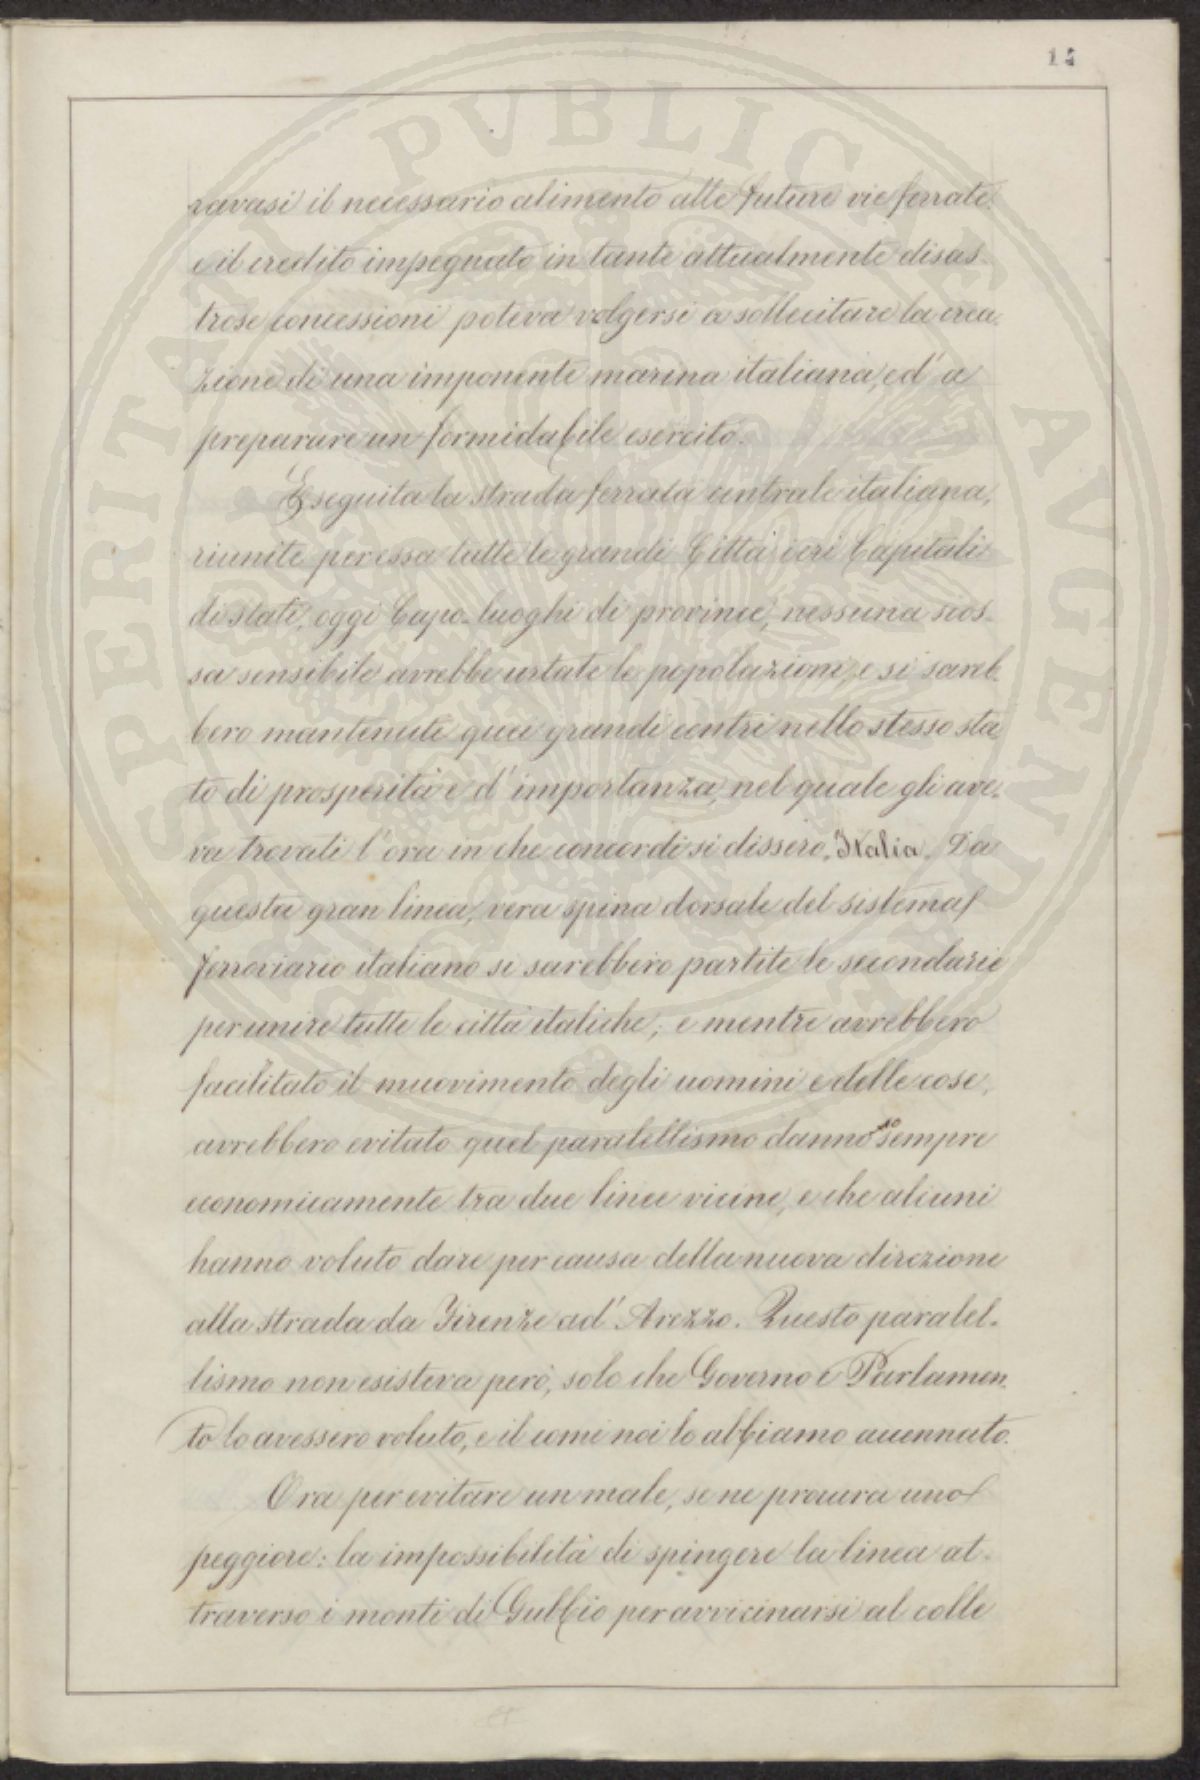 14
ravasi il necessario alimento alle future vie ferrate,
e il credito impegnato in tante attualmente disas-
trose concessioni poteva volgersi a sollecitare la crea-
zione di una imponente marina italiana, ed' a
preparare un formidabile esercito.
Eseguita la strada ferrata centrale italiana,
riunite per essa tutte le grandi Città ieri Capitali
di stati, oggi Capo-luoghi di province, nessuna scos-
sa sensibile avrebbe urtate le popolazioni, e si sareb-
bero mantenute quei grandi centri nello stesso sta
to di prosperità e d' importanza, nel quale gli ave-
va trovati l' ora in che concordi si dissero. Italia. Da
questa gran linea, vera spina dorsale del sistema
ferroviario italiano si sarebbero partite le secondarie
per unire tutte le città italiche; e mentre avrebbero
facilitato il muovimento degli uomini e delle cose,
avrebbero evitato quel paralellismo dannoso sempre
economicamente tra due linee vicine, e che alcuni
hanno voluto dare per causa della nuova direzione
alla strada da Firenze ad' Arezzo. Questo paralel-
lismo non esisteva però, solo che Governo e Parlamen-
to lo avessero voluto, e il come noi lo abbiamo accennato.
Ora per evitare un male, se ne procura uno
peggiore: la impossibilità di spingere la linea at-
traverso i monti di Gubbio per avvicinarsi al colle
PERITAN PVBLICAE AVGENDAE